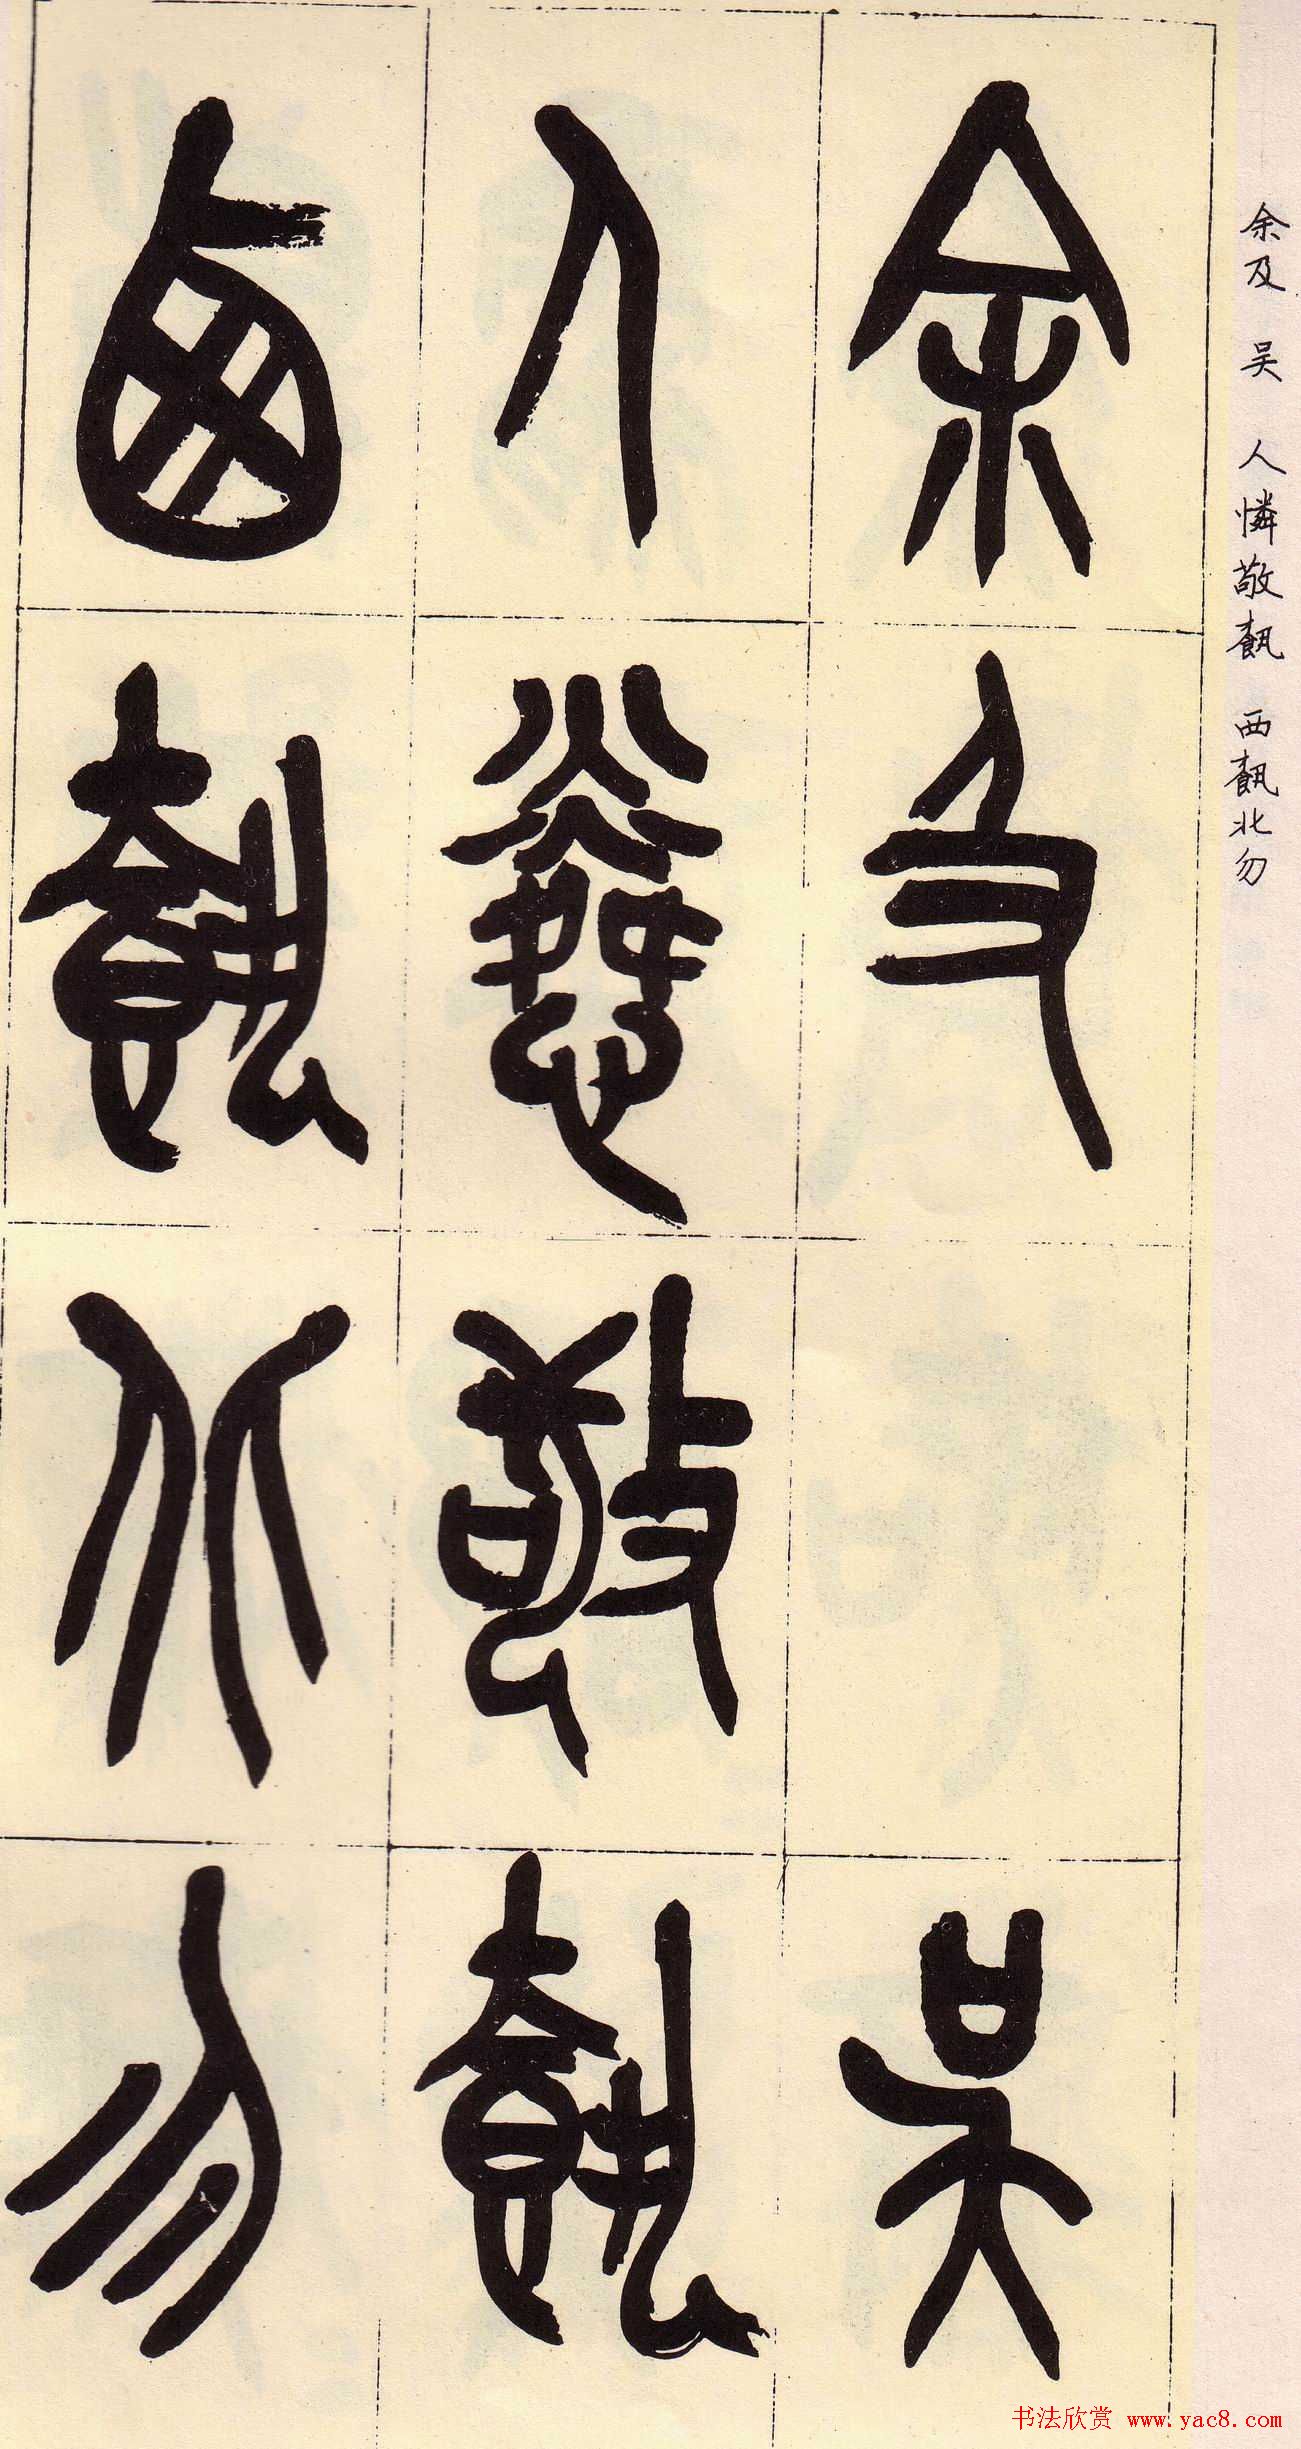 余及 吴 人憐敬𩛥 西𩛥北勿
余及 吴
人憐敬𩛥
西𩛥北勿
书法欣赏 www.yac8.com